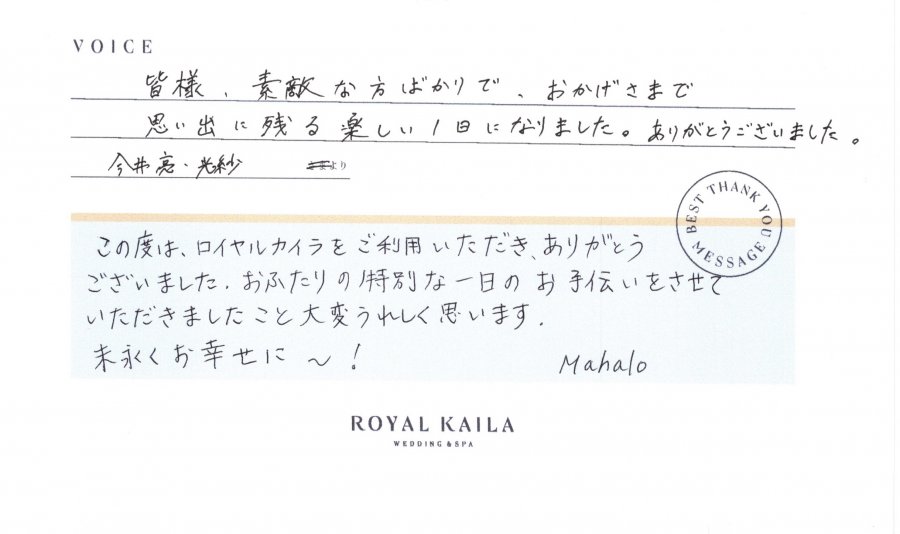 VOICE
皆様、素敵な方ばかりで、おかげさまで
思い出に残る楽しい1日になりました。ありがとうございました。
今井亮・光紗 より
BEST THANK YOU MESSAGE
この度は、ロイヤルカイラをご利用いただき、ありがとう
ございました。おふたりの特別な一日のお手伝いをさせて
いただきましたこと大変うれしく思います.
末永くお幸せに〜!
Mahalo
ROYAL KAILA
WEDDING & SPA